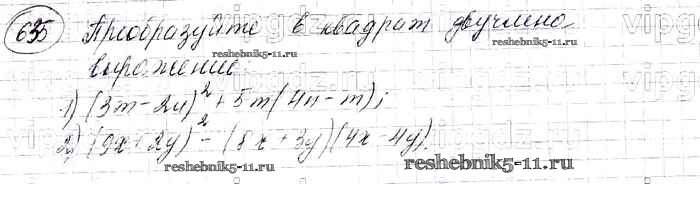 635 Преобразуйте в квадрат двучлена
reshebnik5-11.ru
выражение
reshebnik5-11.ru
1) (3m-2n)² + 5m(4n-m);
2) (9x+2y)² - (8x+3y)(4x-4y).
reshebnik5-11.ru